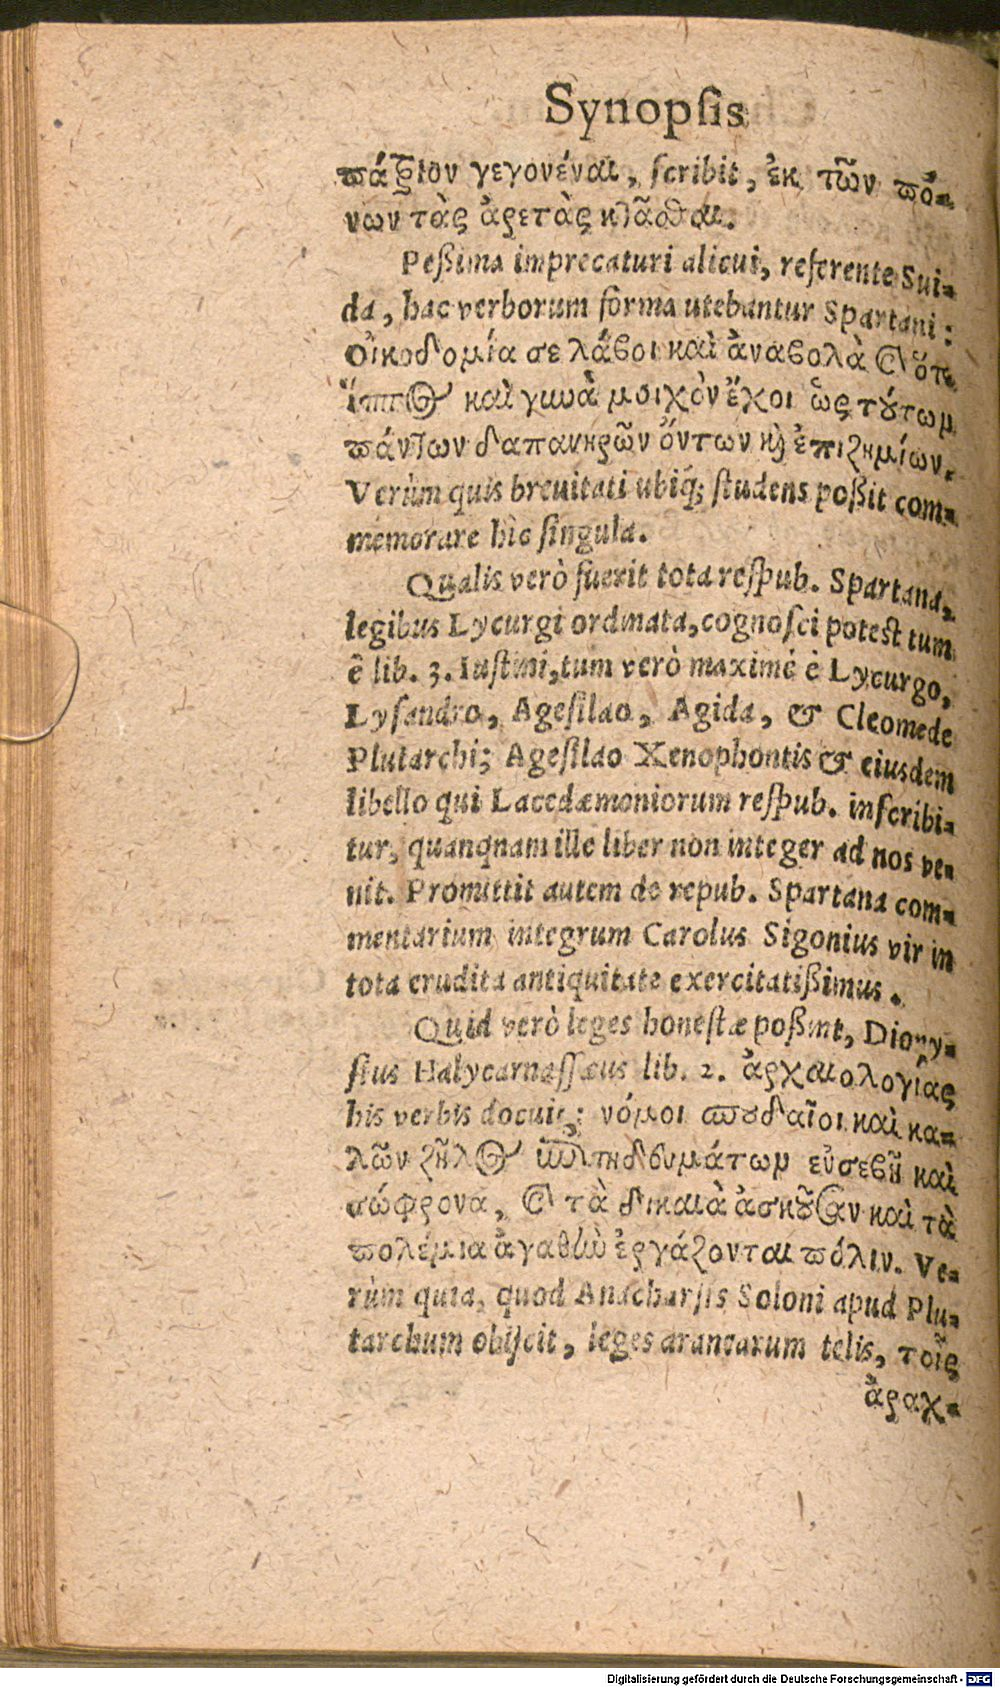 Synopſis
πάτριον γεγονέναι, ſcribit, ἐκ τῶν πό-
νων τὰς ἀρετὰς κτᾶσθαι.
Peßima imprecaturi alicui, referente Sui-
da, hac verborum forma utebantur Spartani:
Οἰκοδομία σε λάβοι καὶ ἀναβολὰ
καὶ γυνὰ μοιχὸν ἔχοι ὡς τούτωμ
πάντων δαπανηρῶν ὄντων καὶ ἐπιζημίων.
Verùm quis breuitati ubiq; ſtudens poßit com-
memorare hîc ſingula.
Qualis verò fuerit tota reſpub. Spartana,
legibus Lycurgi ordinata, cognoſci poteſt tum
ê lib. 3. Iuſtini, tum verò maximè è Lycurgo,
Lyſandro, Ageſilao, Agida, & Cleomede
Plutarchi; Ageſilao Xenophontis & eiusdem
libello qui Lacedæmoniorum reſpub. inſcribi-
tur, quanqnam ille liber non integer ad nos ve-
nit. Promittit autem de repub. Spartana com-
mentarium integrum Carolus Sigonius vir in
tota erudita antiquitate exercitatißimus.
Quid verò leges honeſtæ poßint, Diony-
ſius Halycarnaſſæus lib. 2. ἀρχαιολογίας
his verbis docuit: νόμοι σπουδαῖοι καὶ κα-
λῶν ζῆλος ἐπιτηδευμάτωμ εὐσεβῆ καὶ
σώφρονα, καὶ τὰ δικαιὰ ἀσκοῦσαν καὶ τὰ
πολέμια ἀγαθὴν ἐργάζονται πόλιν. Ve-
rùm quia, quod Anacharſis Soloni apud Plu-
tarchum obijcit, leges aranearum telis, τοῖς
ἀραχ-
Digitalisierung gefördert durch die Deutsche Forschungsgemeinschaft - DFG